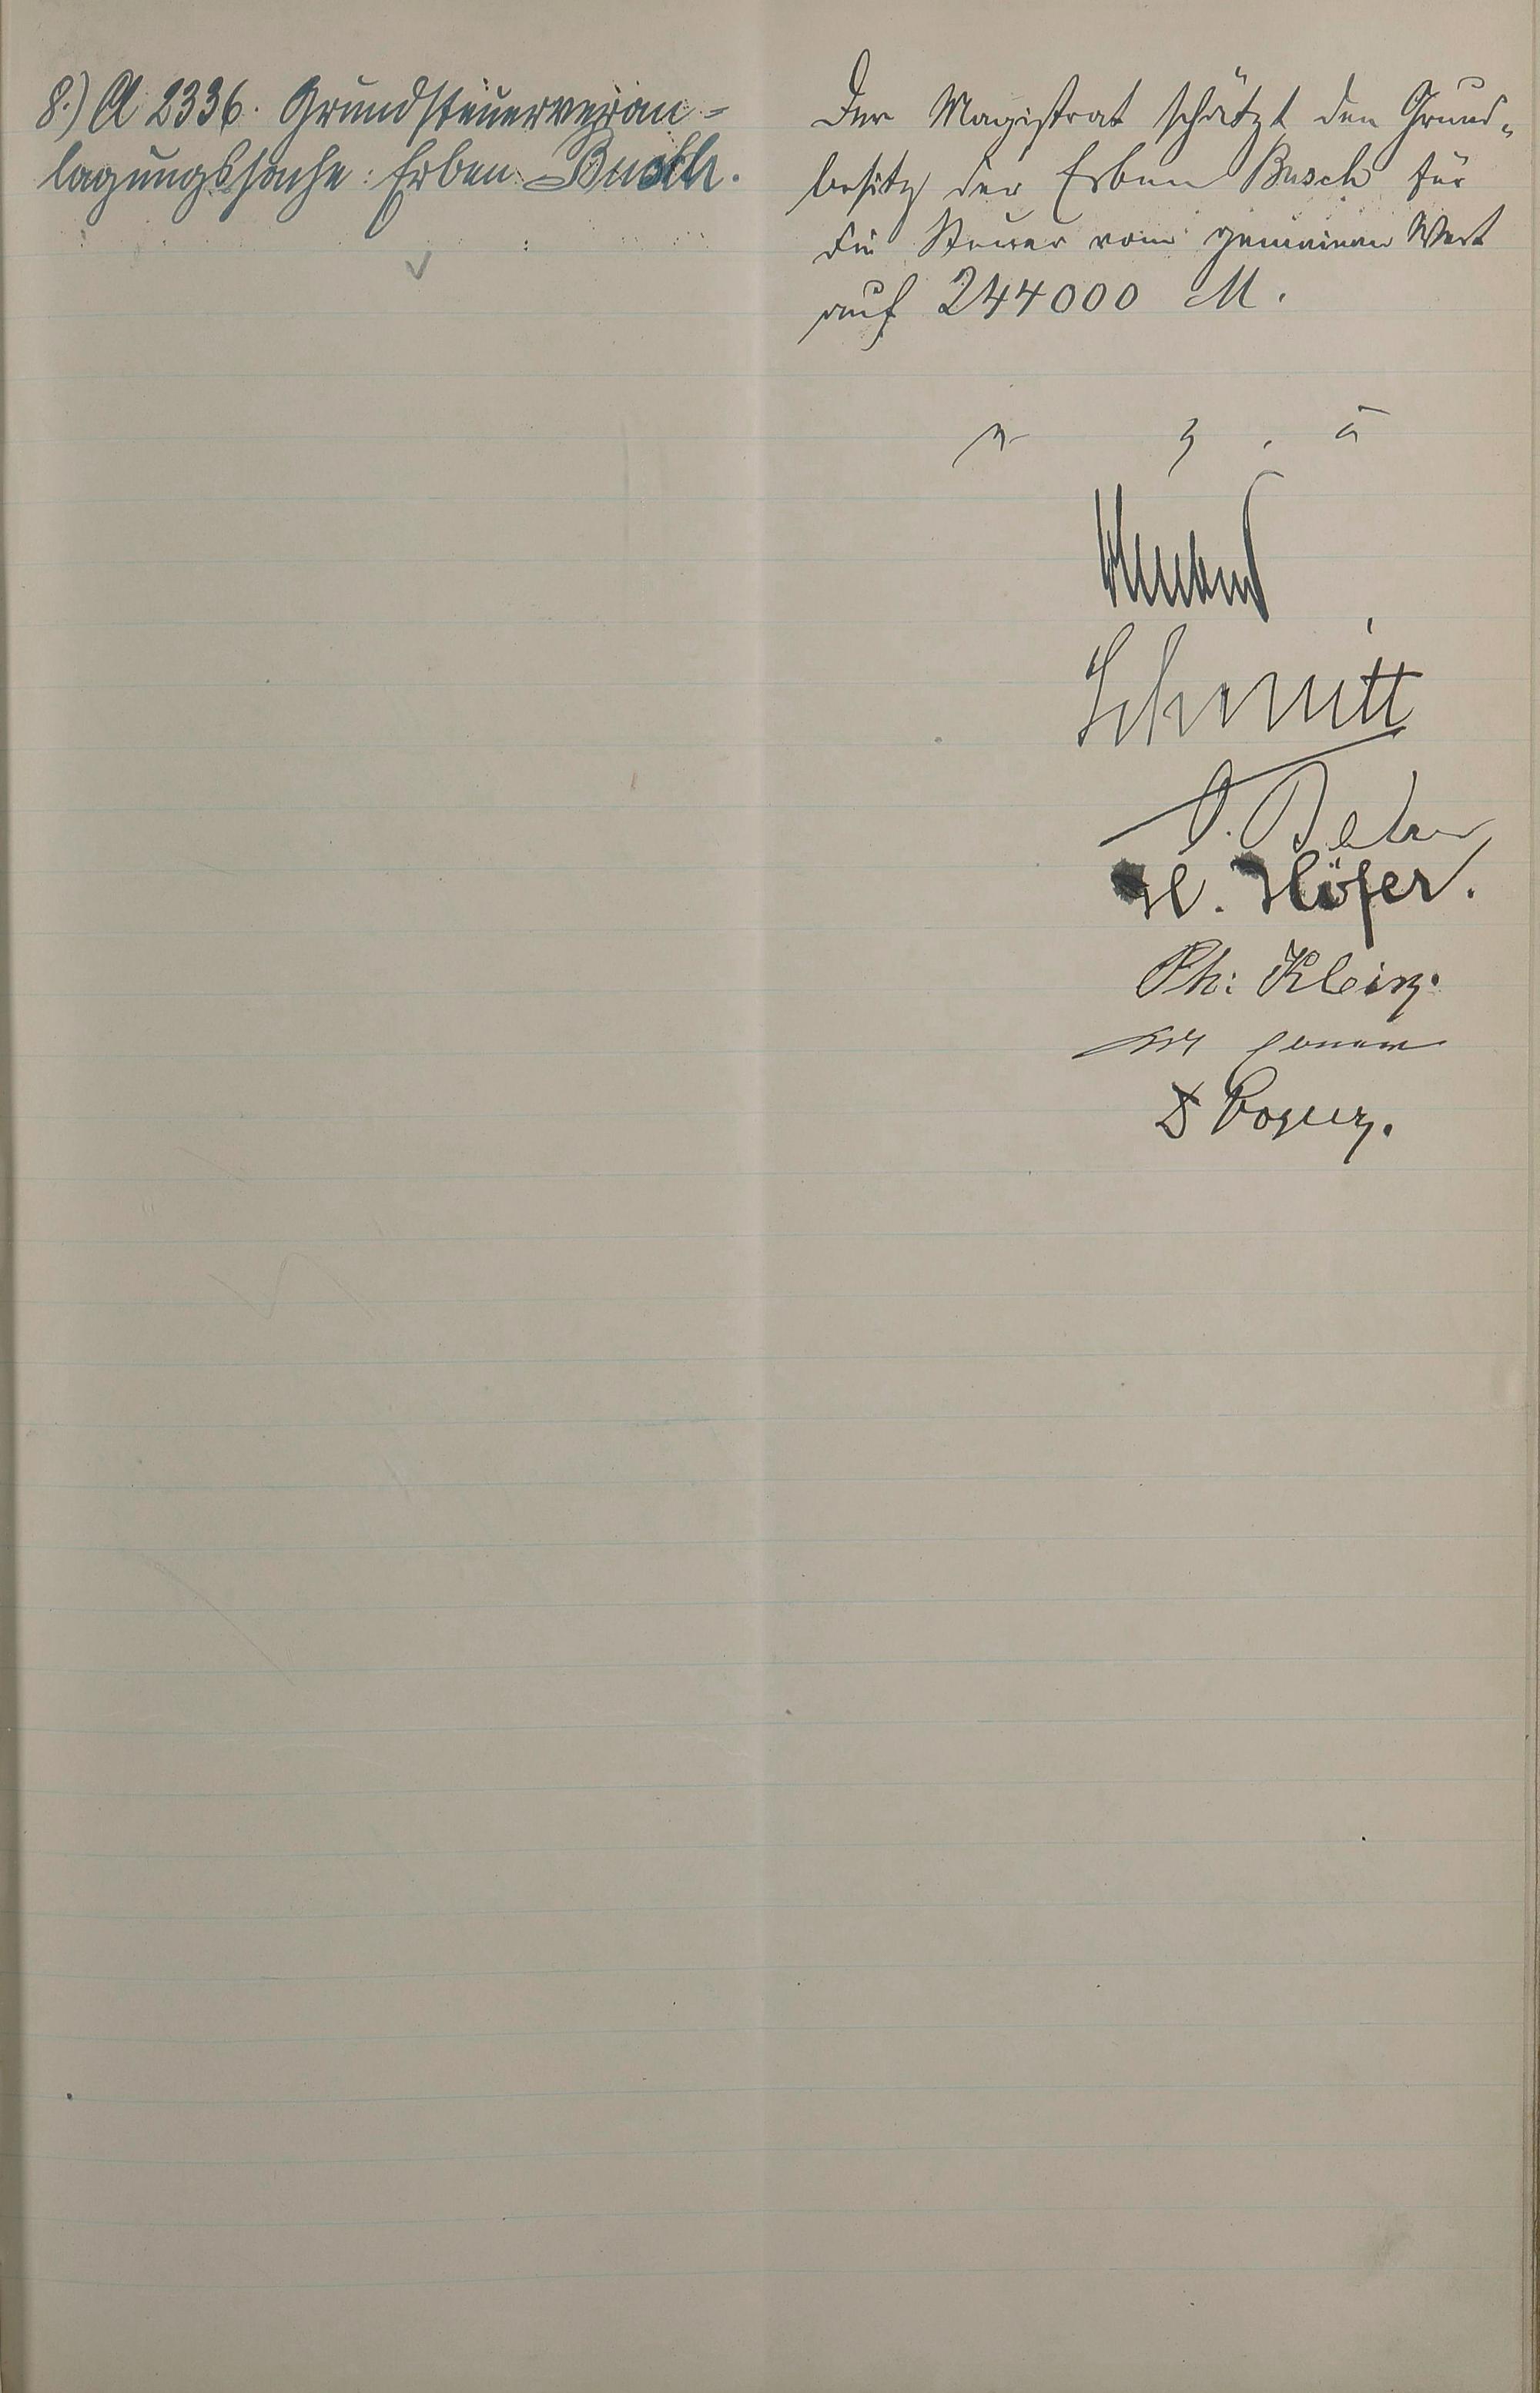 8.) A 2336. Grundsteuerveran=
lagungssache: Erben Busch.
Der Magistrat schätzt den Grund-
besitz der Erben Busch für
die Steuer vom gemeinen Wert
auf 244000 M.
v. g. u.
Schmitt
H. Höfer.
Ph: Klein.